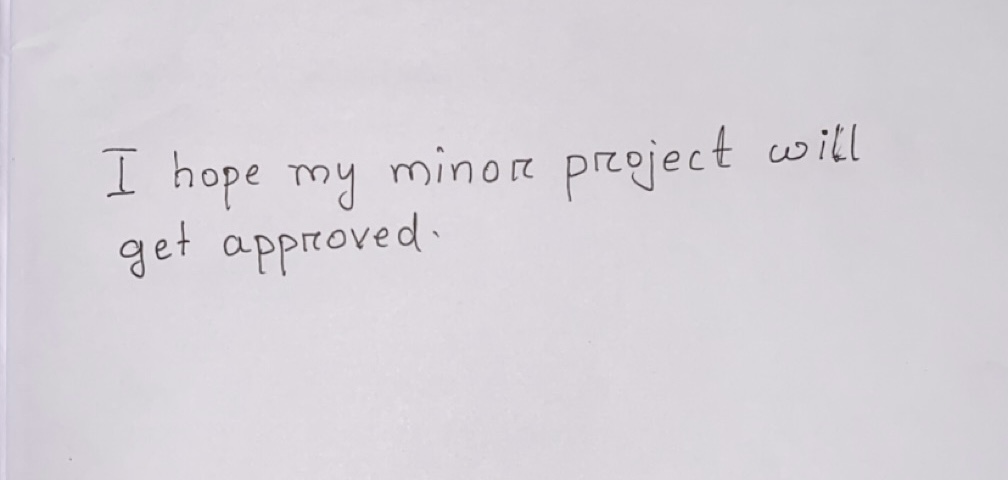 I hope my minor project will
get approved.